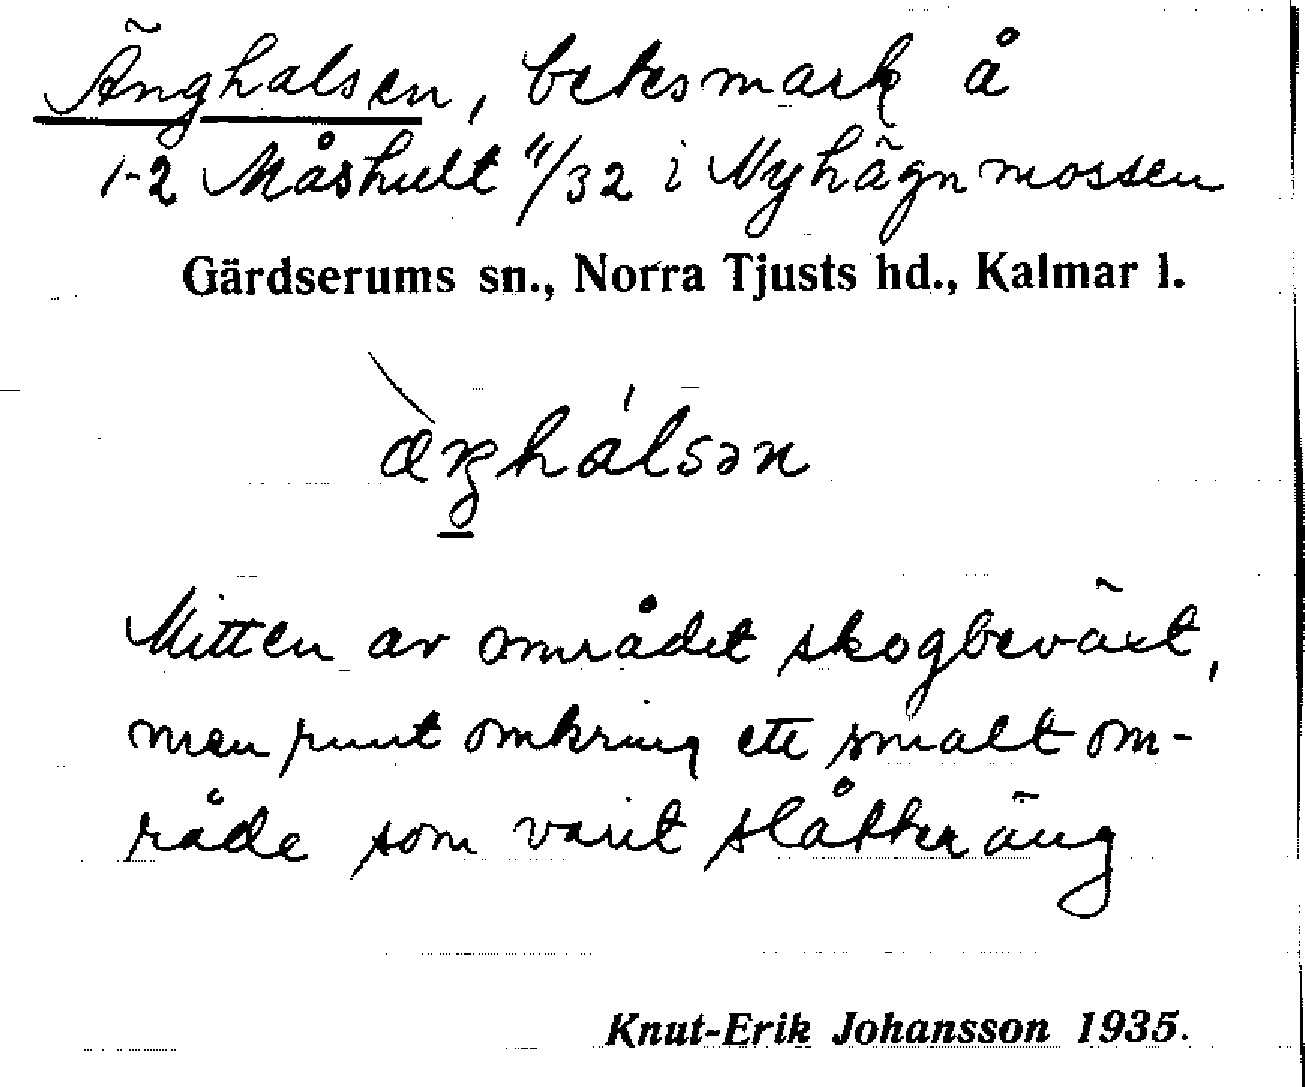 Änghalsen, betesmark å
1-2 Måshult 11/32 i Nyhägnmossen
Gärdserums sn., Norra Tjusts hd., Kalmar l.
`æŋhálsən
Mitten av området skogbeväxt,
men runt omkring ett smalt om-
råde som varit slåtteräng
Knut-Erik Johansson 1935.